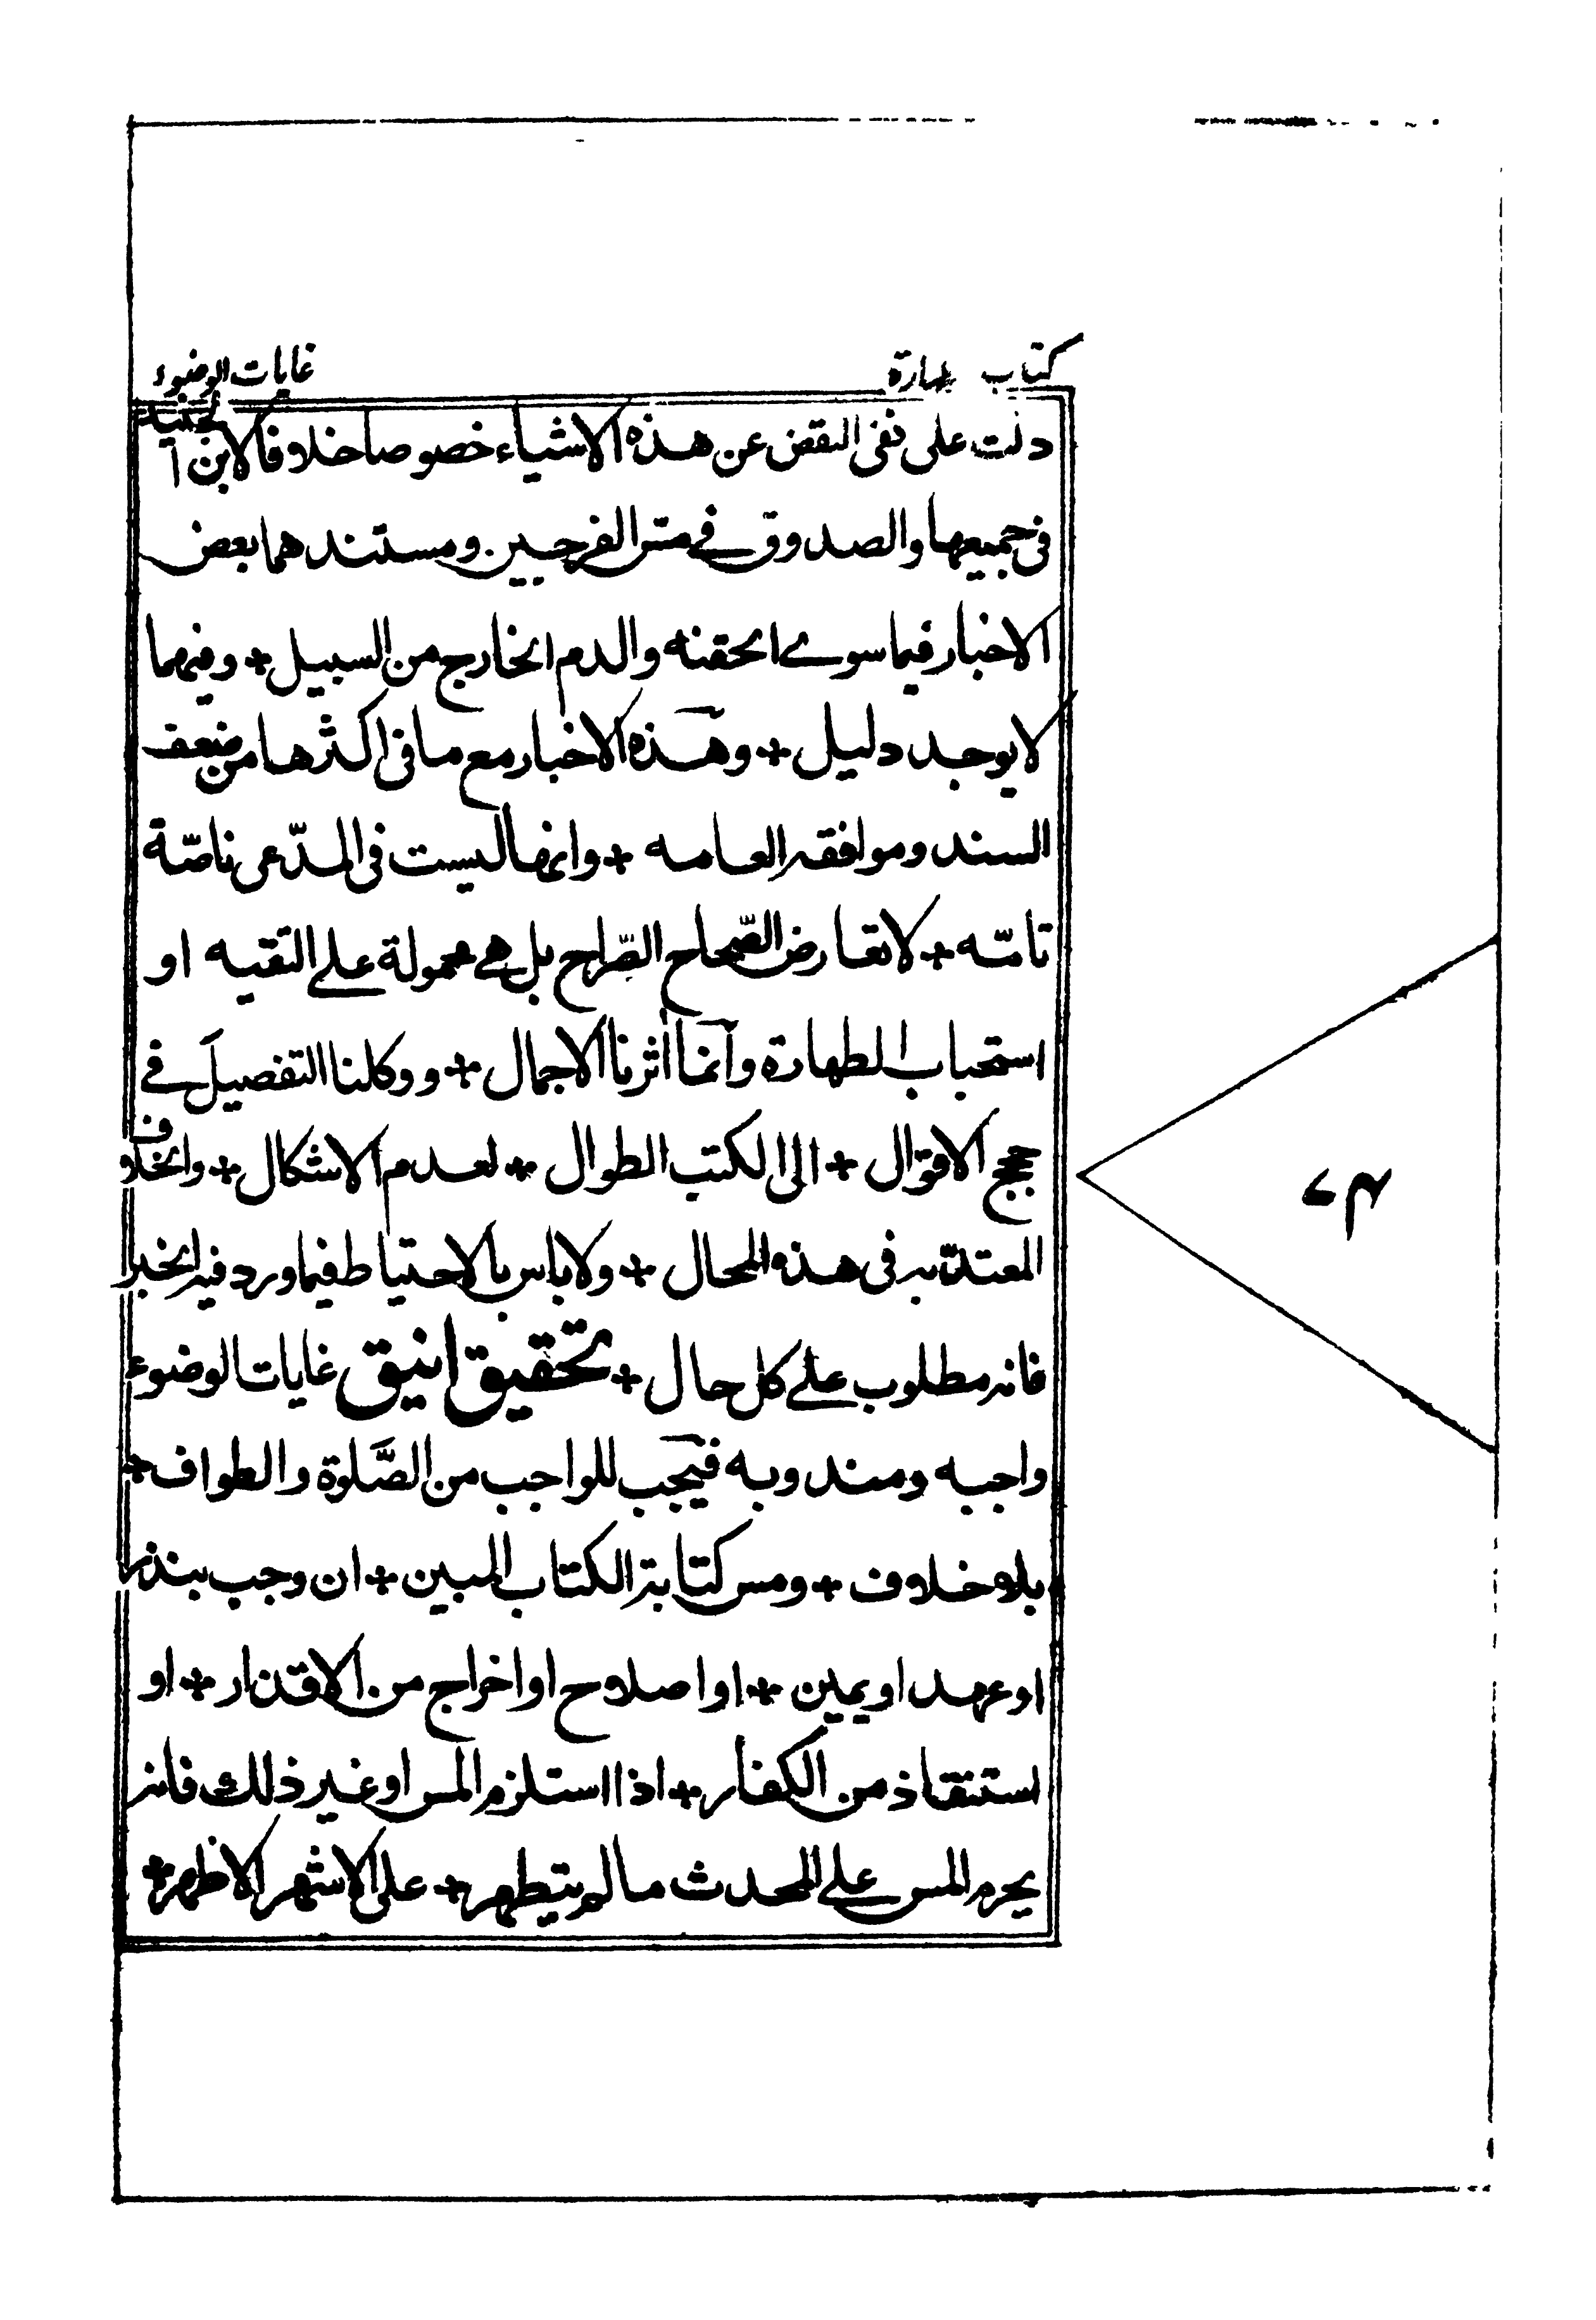 كتاب طهارة
غايات الوضوء
دلت على نفى النقض عن هذه الاشياء خصوصا خلافا لابن الجنيد
فى جميعها والصدوق في مس الفرجين ومستندهما بعض
الاخبار فيما سوے الحقنه والدم الخارج من السبيل + وفيهما
لا يوجد دليل + وهذه الاخبار مع ما فى اكثرها من ضعف
السند وموافقه العامه + وانها ليست فى المدّعى ناصّة
تامّه + لا تعارض الصّحاح الصّراح بل هے محمولة علے التقيه او
استحباب الطهارة وانما اثرنا الاجمال + ووكلنا التفصيل في
حجج الاقوال + الى الكتب الطوال + لعدم الاشكال + والخلاف
المعتدّ به فى هذه المحال + ولا باس بالاحتياط فيما ورد فيه الخبر
فانه مطلوب علے كل حال + تحقيق انيق غايات الوضوء
واجبه ومندوبه فيجب للواجب من الصَّلوة والطواف +
بلا خلاف + ومس كتابة الكتاب المبين + ان وجب بنذر
او عهد او يمين + او اصلاح او اخراج من الاقذار + او
استنقاذ من الكفار + اذا استلزم المس او غير ذلك فانه
يحرم المس علے المحدث ما لم يتطهر + على الاشهر الاظهر +
۷۴